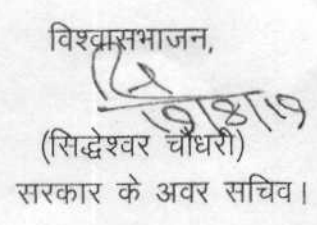 विश्वासभाजन,
19/8/19
(सिद्धेश्वर चौधरी)
सरकार के अवर सचिव।